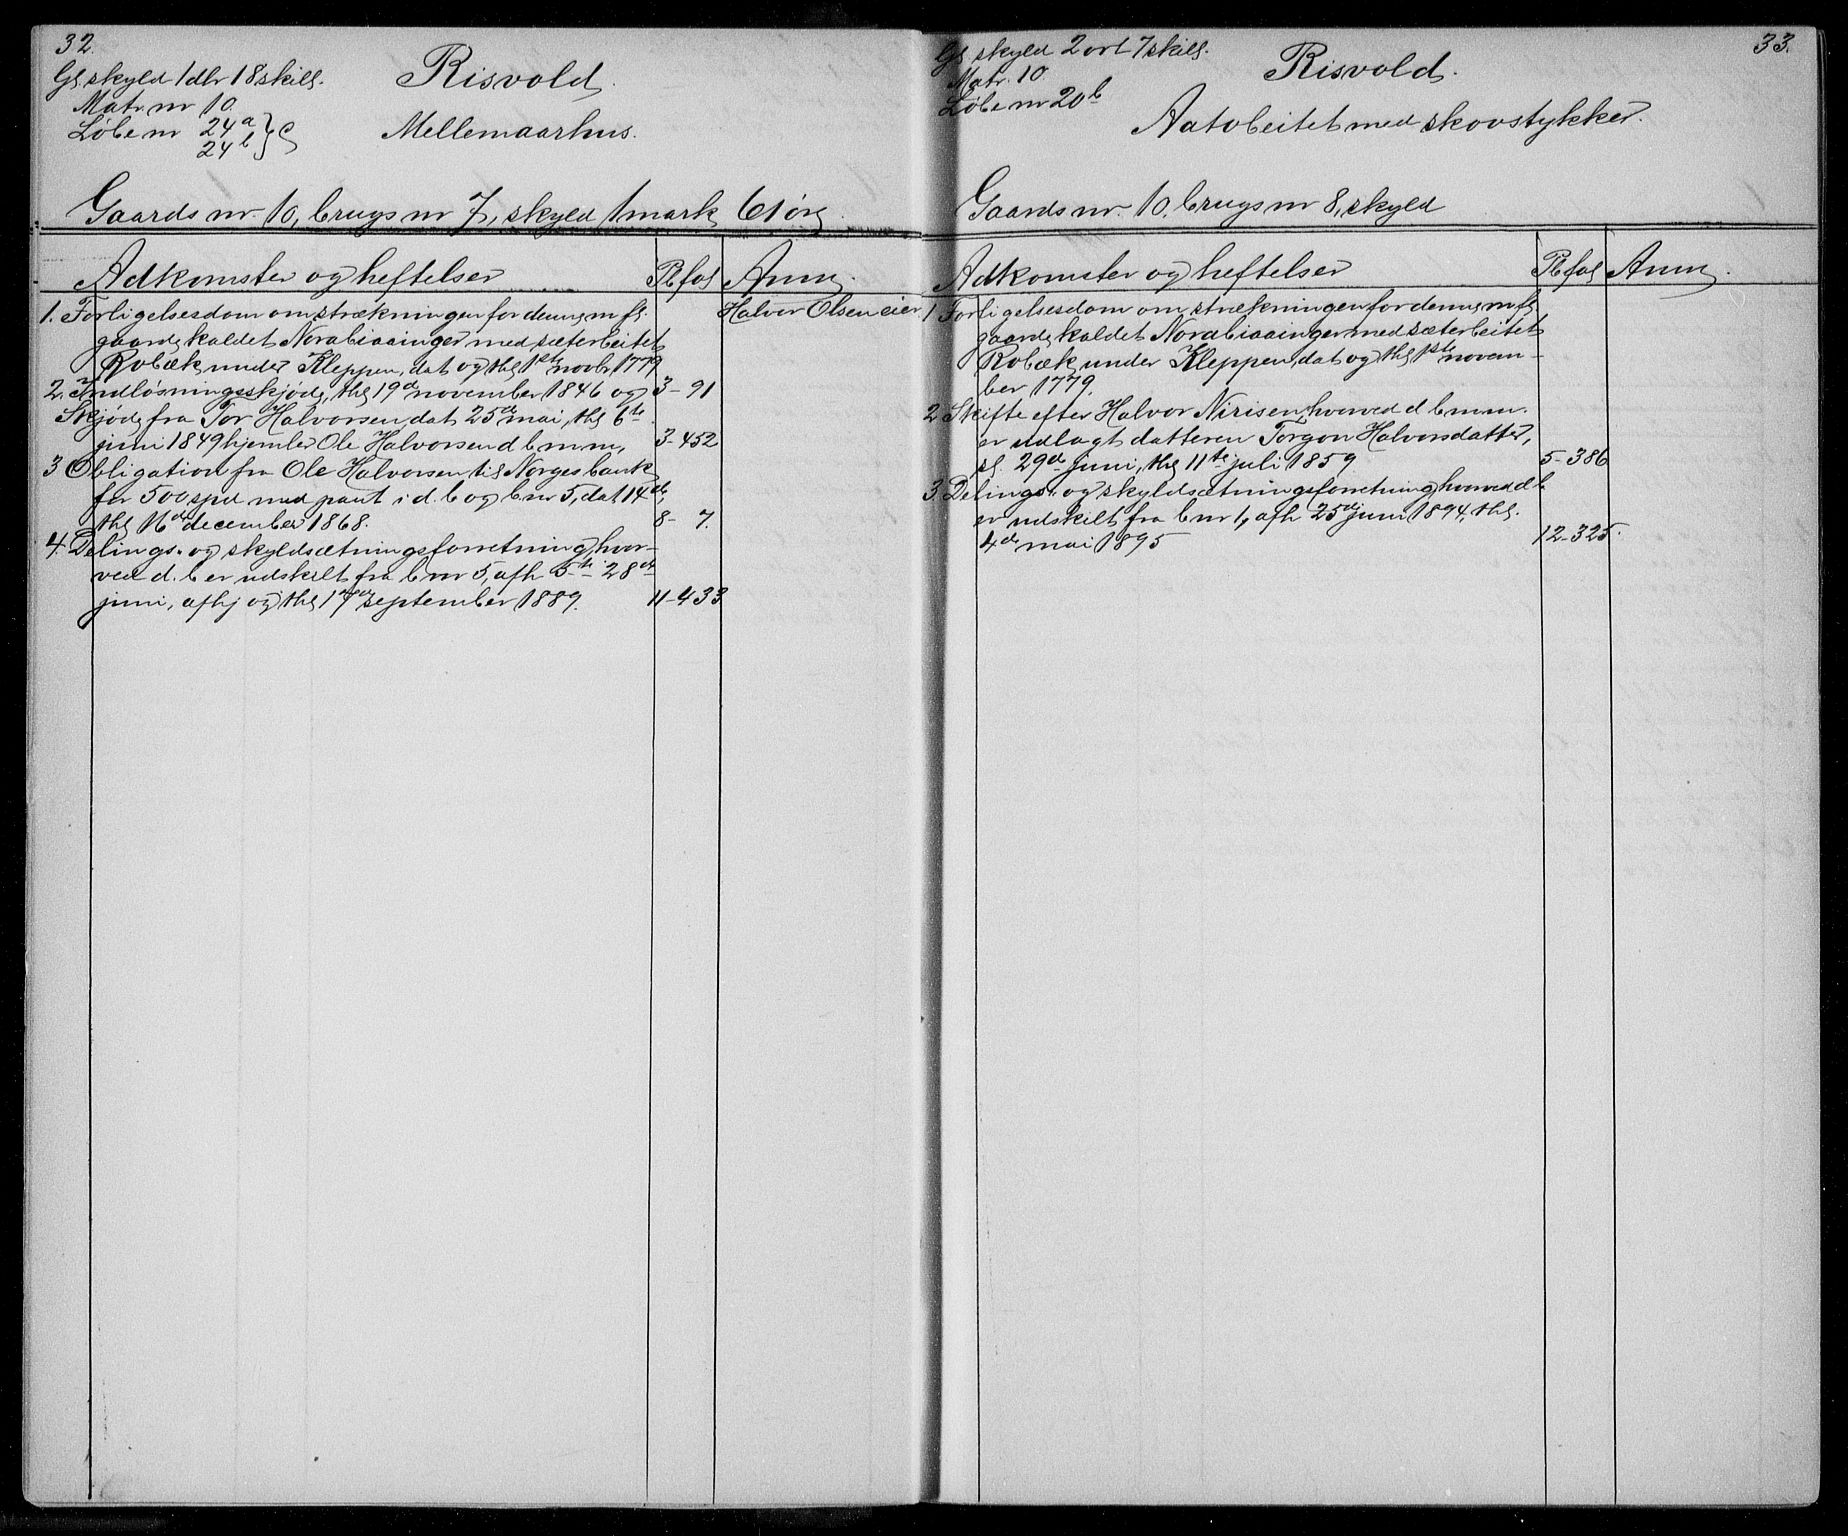 32.
Gl. skyld 1 dlr 18 skill.
Matr. nr 10.
Løbe nr 24 a
24 b } c
Risvold.
Mellemaarhus.
Gaards nr. 10, brugs nr 7, skyld 1 mark 61 øre
Adkomster og heftelser Pb fol Anm.
1. Forligelsesdom om strækningen for denne m fl. Halvor Olsen eier
gaarde kaldet Norabiaainger med sæterbeitet
Robæk under Kleppen, dat og thl 1ste novbr. 1779
2. Indløsningsskjøde, thl 19de november 1846 og 3- 91
Skjøde fra Tor Halvorsen dat 25de mai, thl 6te
juni 1849 hjemler Ole Halvorsen d b m m, 3- 452
3 Obligation fra Ole Halvorsen til Norges bank
for 500 spd med pant i d. b og b nr 5, dat 14de,
thl 16de december 1868. 8- 7.
4. Delings- og skyldsætningsforretning, hvor-
ved d. b er udskilt fra b nr 5, afh 5te 28de
juni, afhj og thl 17de september 1889. 11- 433
33.
Gl. skyld 2 ort 7 skill.
Matr. 10
Løbe nr 20 b
Risvold.
Aatobeitet med skovstykker.
Gaards nr. 10, brugs nr 8, skyld
Adkomster og heftelser Pb fol Anm.
1 Forligelsesdom om strækningen for denne m fl
gaarde kaldet Norabiaainger med sæterbeitet
Robæk under Kleppen, dat og thl 1ste novem-
ber 1779.
2 Skifte efter Halvor Nirisen, hvorved d b m m.
er udlagt datteren Torgon Halvorsdatter,
sl. 29de juni, thl 11te juli 1859 5- 386
3. Delings- og skyldsætningsforretning, hvorved d b
er udskilt fra b nr 1, afh 25de juni 1894, thl.
4de mai 1895 12- 325.